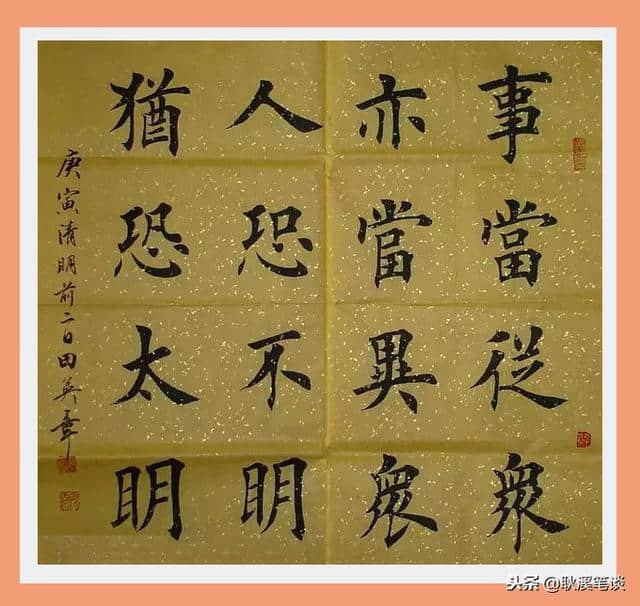 事當從衆
亦當異衆
人恐不明
猶恐太明
庚寅清明前二日田英章
头条 @耿溪笔谈